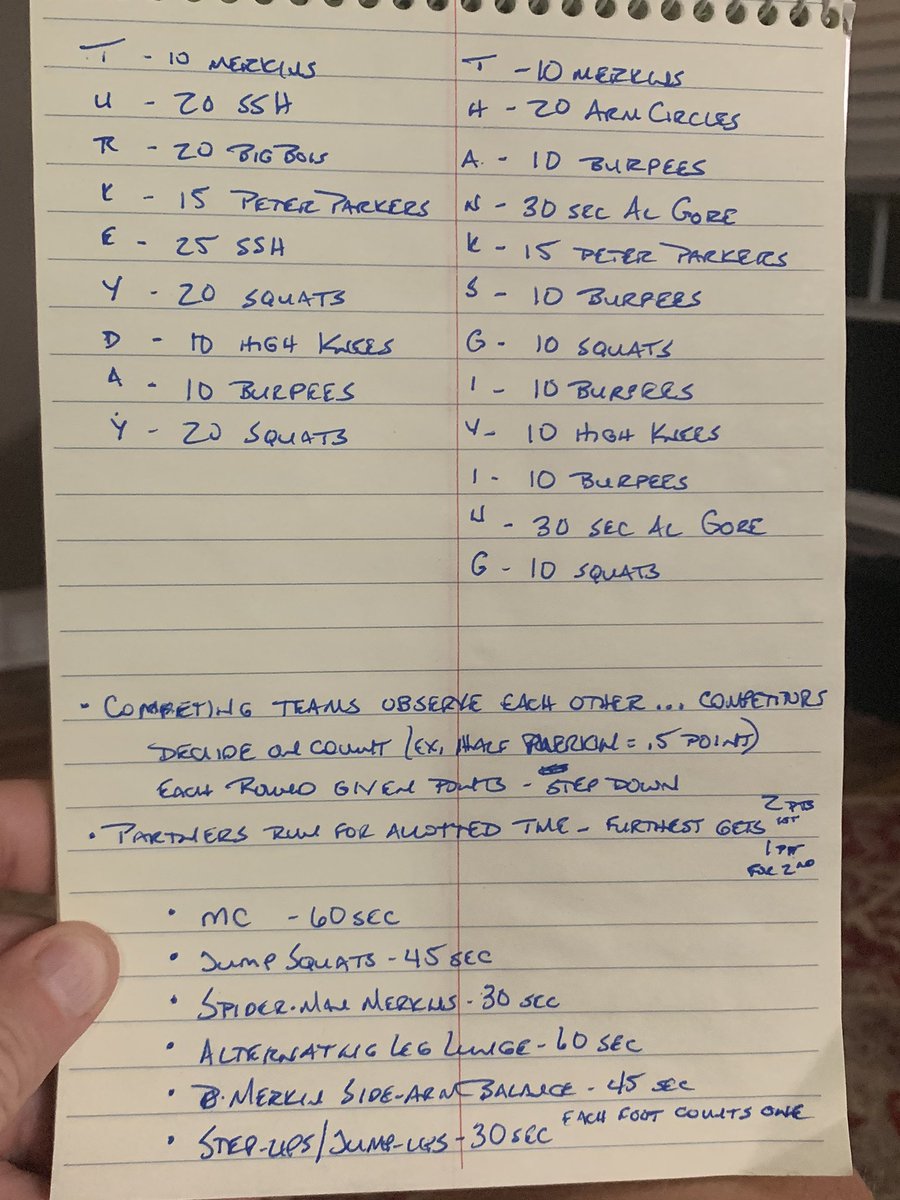 T - 10 MERKINS
U - 20 SSH
R - 20 BIG BOIS
K - 15 PETER PARKERS
E - 25 SSH
Y - 20 SQUATS
D - 10 HIGH KNEES
A - 10 BURPEES
Y - 20 SQUATS
T - 10 MERKINS
H - 20 ARM CIRCLES
A. - 10 BURPEES
N - 30 SEC AL GORE
K - 15 PETER PARKERS
S - 10 BURPEES
G - 10 SQUATS
I - 10 BURPEES
V - 10 HIGH KNEES
I - 10 BURPEES
N - 30 SEC AL GORE
G - 10 SQUATS
• COMPETING TEAMS OBSERVE EACH OTHER ... COMPETITORS
DECIDE ON COUNT (EX, HALF MERKIN = .5 POINT)
EACH ROUND GIVEN POINTS - STEP DOWN
• PARTNERS RUN FOR ALLOTTED TIME - FURTHEST GETS 2 PTS 1ST
1 PT
FOR 2ND
• MC - 60 SEC
• JUMP SQUATS - 45 SEC
• SPIDER-MAN MERKINS - 30 SEC
• ALTERNATING LEG LUNGE - 60 SEC
• MERKIN SIDE-ARM BALANCE - 45 SEC
• STEP-UPS/JUMP-UPS - 30 SEC EACH FOOT COUNTS ONE